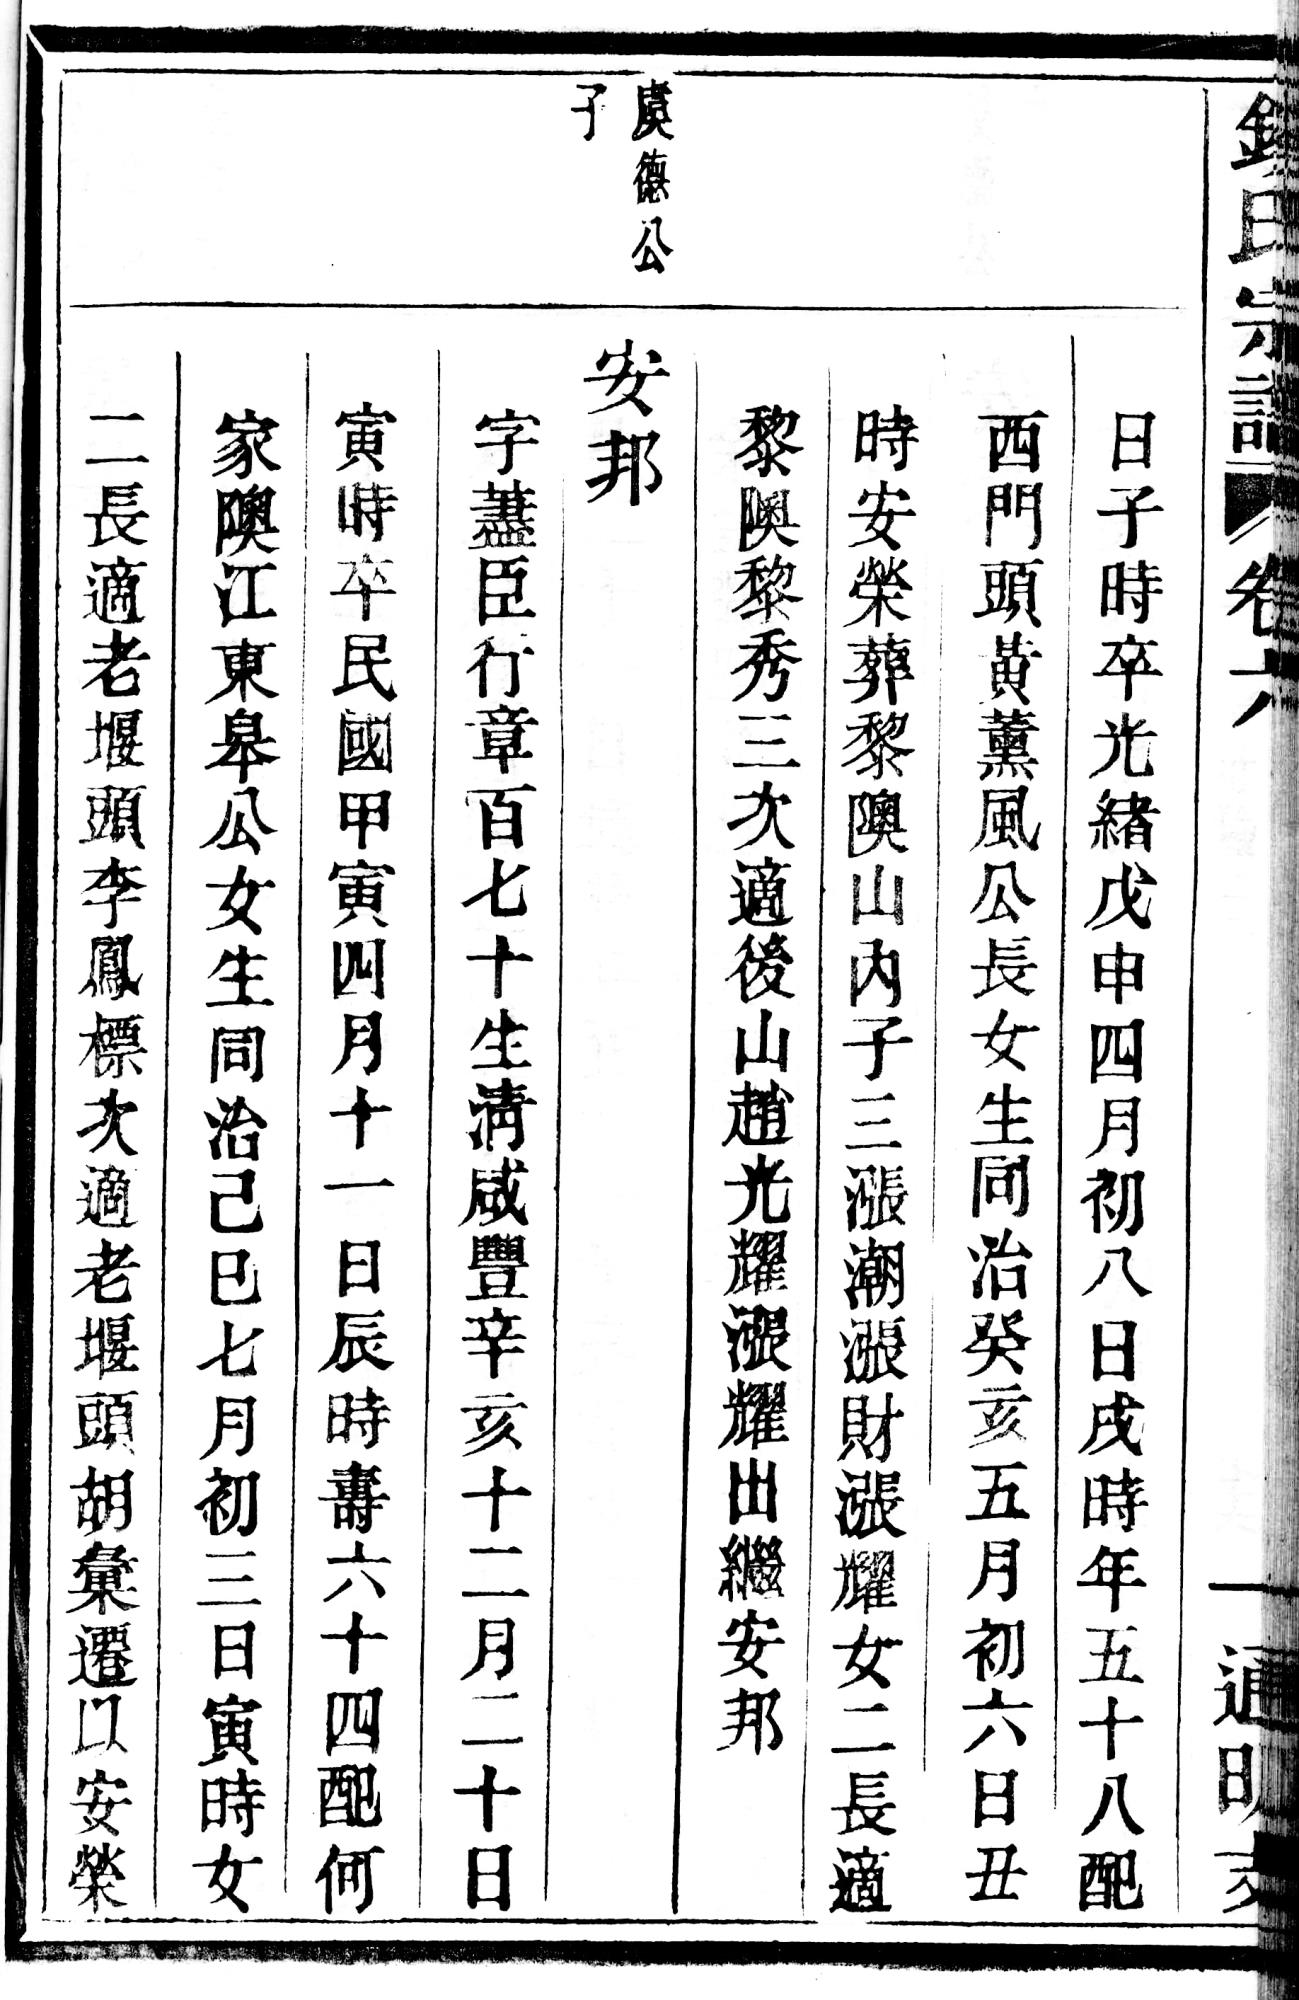 氏宗譜 卷六 一 通明支
日子時卒光緒戊申四月初八日戌時年五十八配
西門頭黃薰風公長女生同治癸亥五月初六日丑
時安榮葬黎隩山內子三漲潮漲財漲耀女二長適
黎隩黎秀三次適後山趙光耀漲耀出繼安邦
虞德公
子
安邦
字藎臣行章百七十生清咸豐辛亥十二月二十日
寅時卒民國甲寅四月十一日辰時壽六十四配何
家隩江東皋公女生同治己巳七月初三日寅時女
二長適老堰頭李鳳標次適老堰頭胡彙遷以安榮